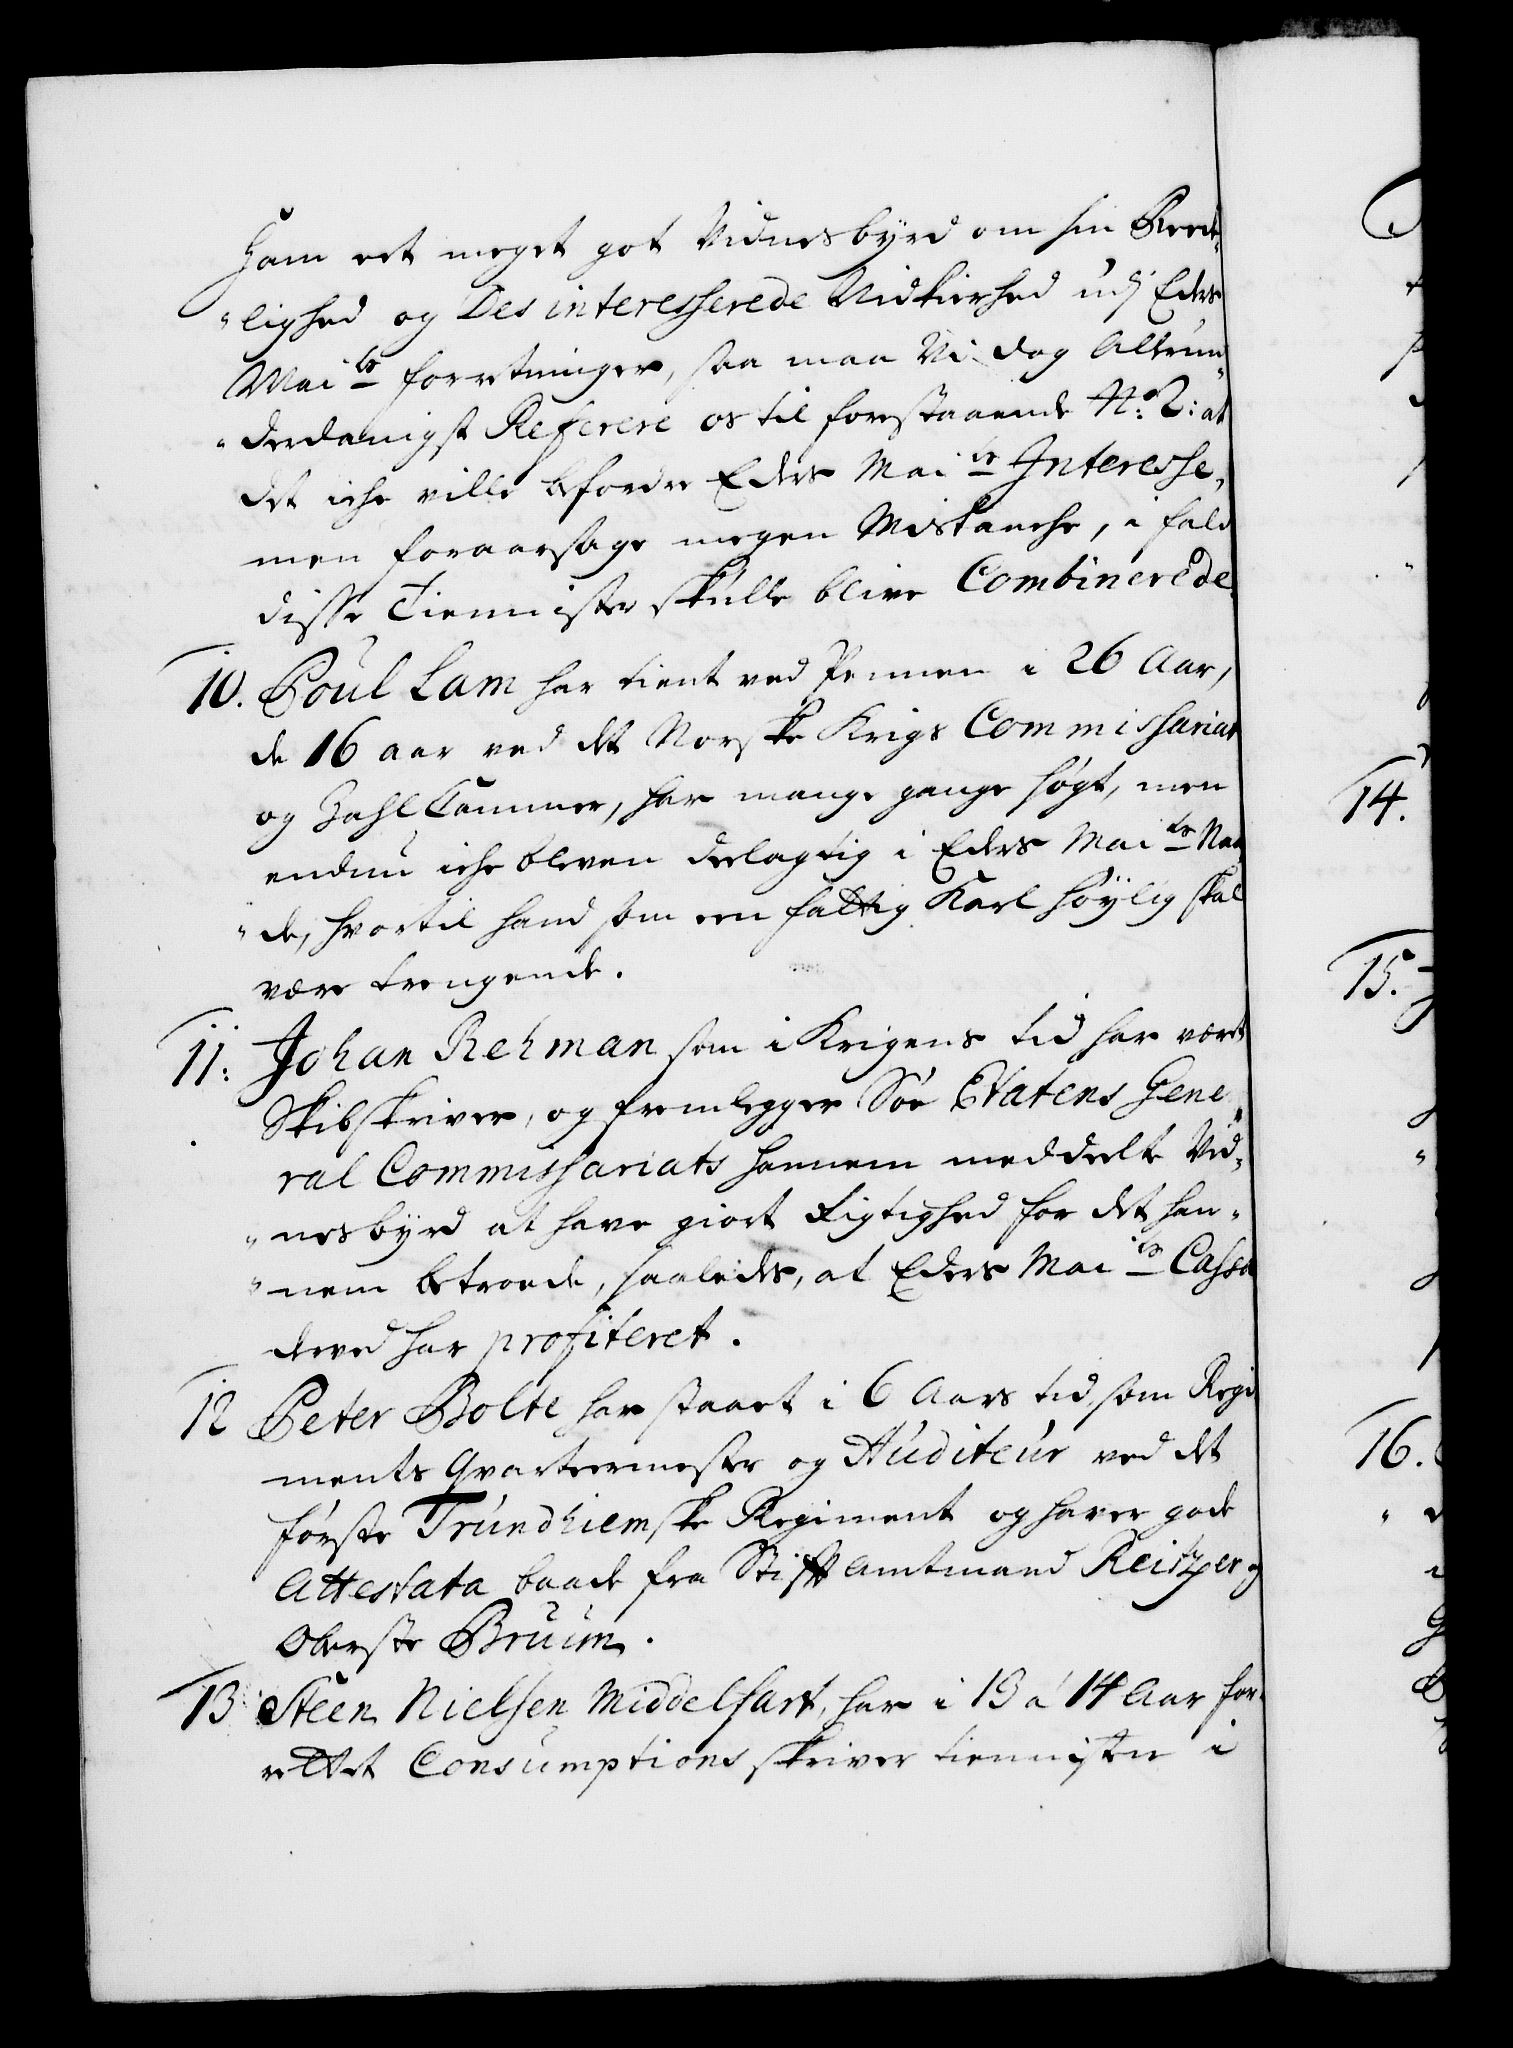 ham eet meget got Vidnesbyrd om sin Reed-
"lighed og Desinteresserede Nidkierhed udj Eders
Mai ts forretninger, saa maa Vi dog Allerun-
"derdanigst Referere os til forestaaende No. 2: at
det iche ville befordre Eders Mai ts Interesse,
men foraarsage megen Mistanche, i fald
disse Tiennister skulle blive Combinerede.
10. Poul Lam har tient ved Pennen i 26 Aar,
de 16 aar ved det Norske Krigs Commissariat
og Zahl Cammer, har mange gange søgt, men
endnu iche bleven deelagtig i Eders Mai ts Naa
"de, hvortil hand som een fattig Karl høylig skal
være trengende.
11: Johan Rehman som i Krigens tid har været
Skibskriver, og fremlegger Søe Etatens Gene-
ral Commissariats hannem meddeelte Vid-
"nesbyrd at have giort Rigtighed for det han-
"nem betroede, saaledes, at Eders Mai ts Cassa
derved har profiteret.
12 Peter Bolte har staaet i 6 Aars tid som Regi
ments Qvarteermester og Auditeur ved det
første Trundhiemske Regiment og haver gode
Attestata baade fra Stifft Amtmand Reitzer og
Oberste Bruun.
13 Steen Nielsen Middelfart, har i 13 á 14 Aar for-
rettet Consumptions skriver tiennisten i
14.
15.
16.